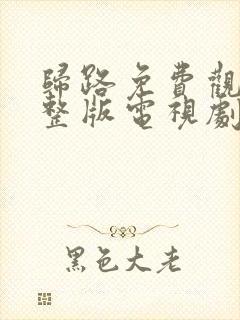 歸路免費觀
整版電視劇
黑色大老